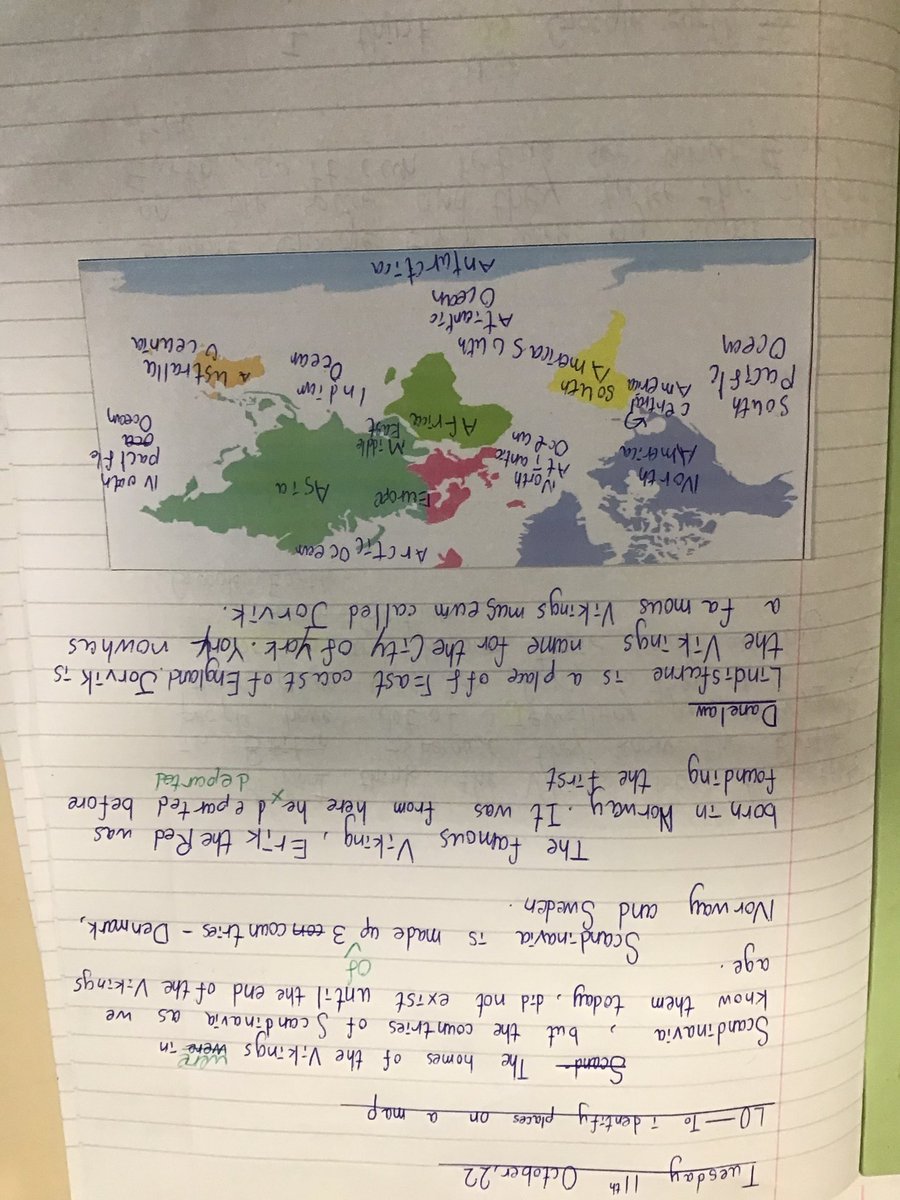 Tuesday 11th October, 22
LO - To identify places on a map
Scand The homes of the Vikings were were in
Scandinavia, but the countries of Scandinavia as we
know them today, did not exist until the end of the Vikings
age.
of
Scandinavia is made up 3 con countries - Denmark,
Norway and Sweden.
The famous Viking, Erik the Red was
born in Norway. It was from here he departed before
departed
founding the first
Danelaw
Lindisfarne is a place off East coast of England. Jorvik is
the Vikings name for the City of york. York nowhas
a famous Vikings museum called Jorvik.
Arctic Ocean
North America
Europe
Asia
North Atlantic Ocean
Middle East
Africa
Central America
South America
South Pacific Ocean
pacific Ocean
Ocean
Australia
Atlantic Ocean